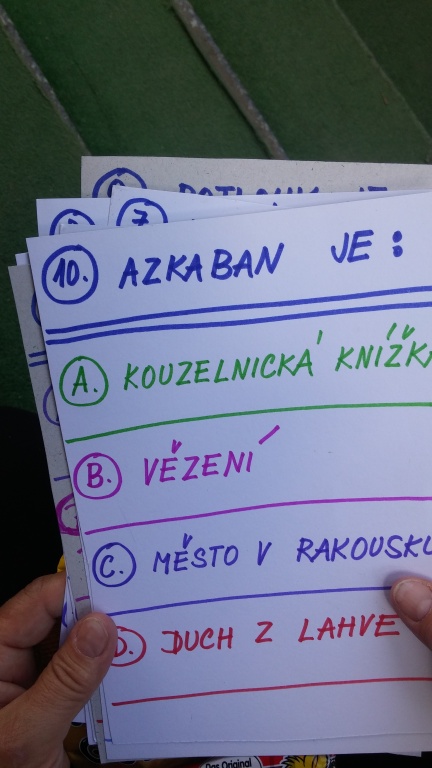 7
10. AZKABAN JE:
A. KOUZELNICKÁ KNÍŽK
B. VĚZENÍ
C. MĚSTO V RAKOUSKU
D. DUCH Z LAHVE
Das Original